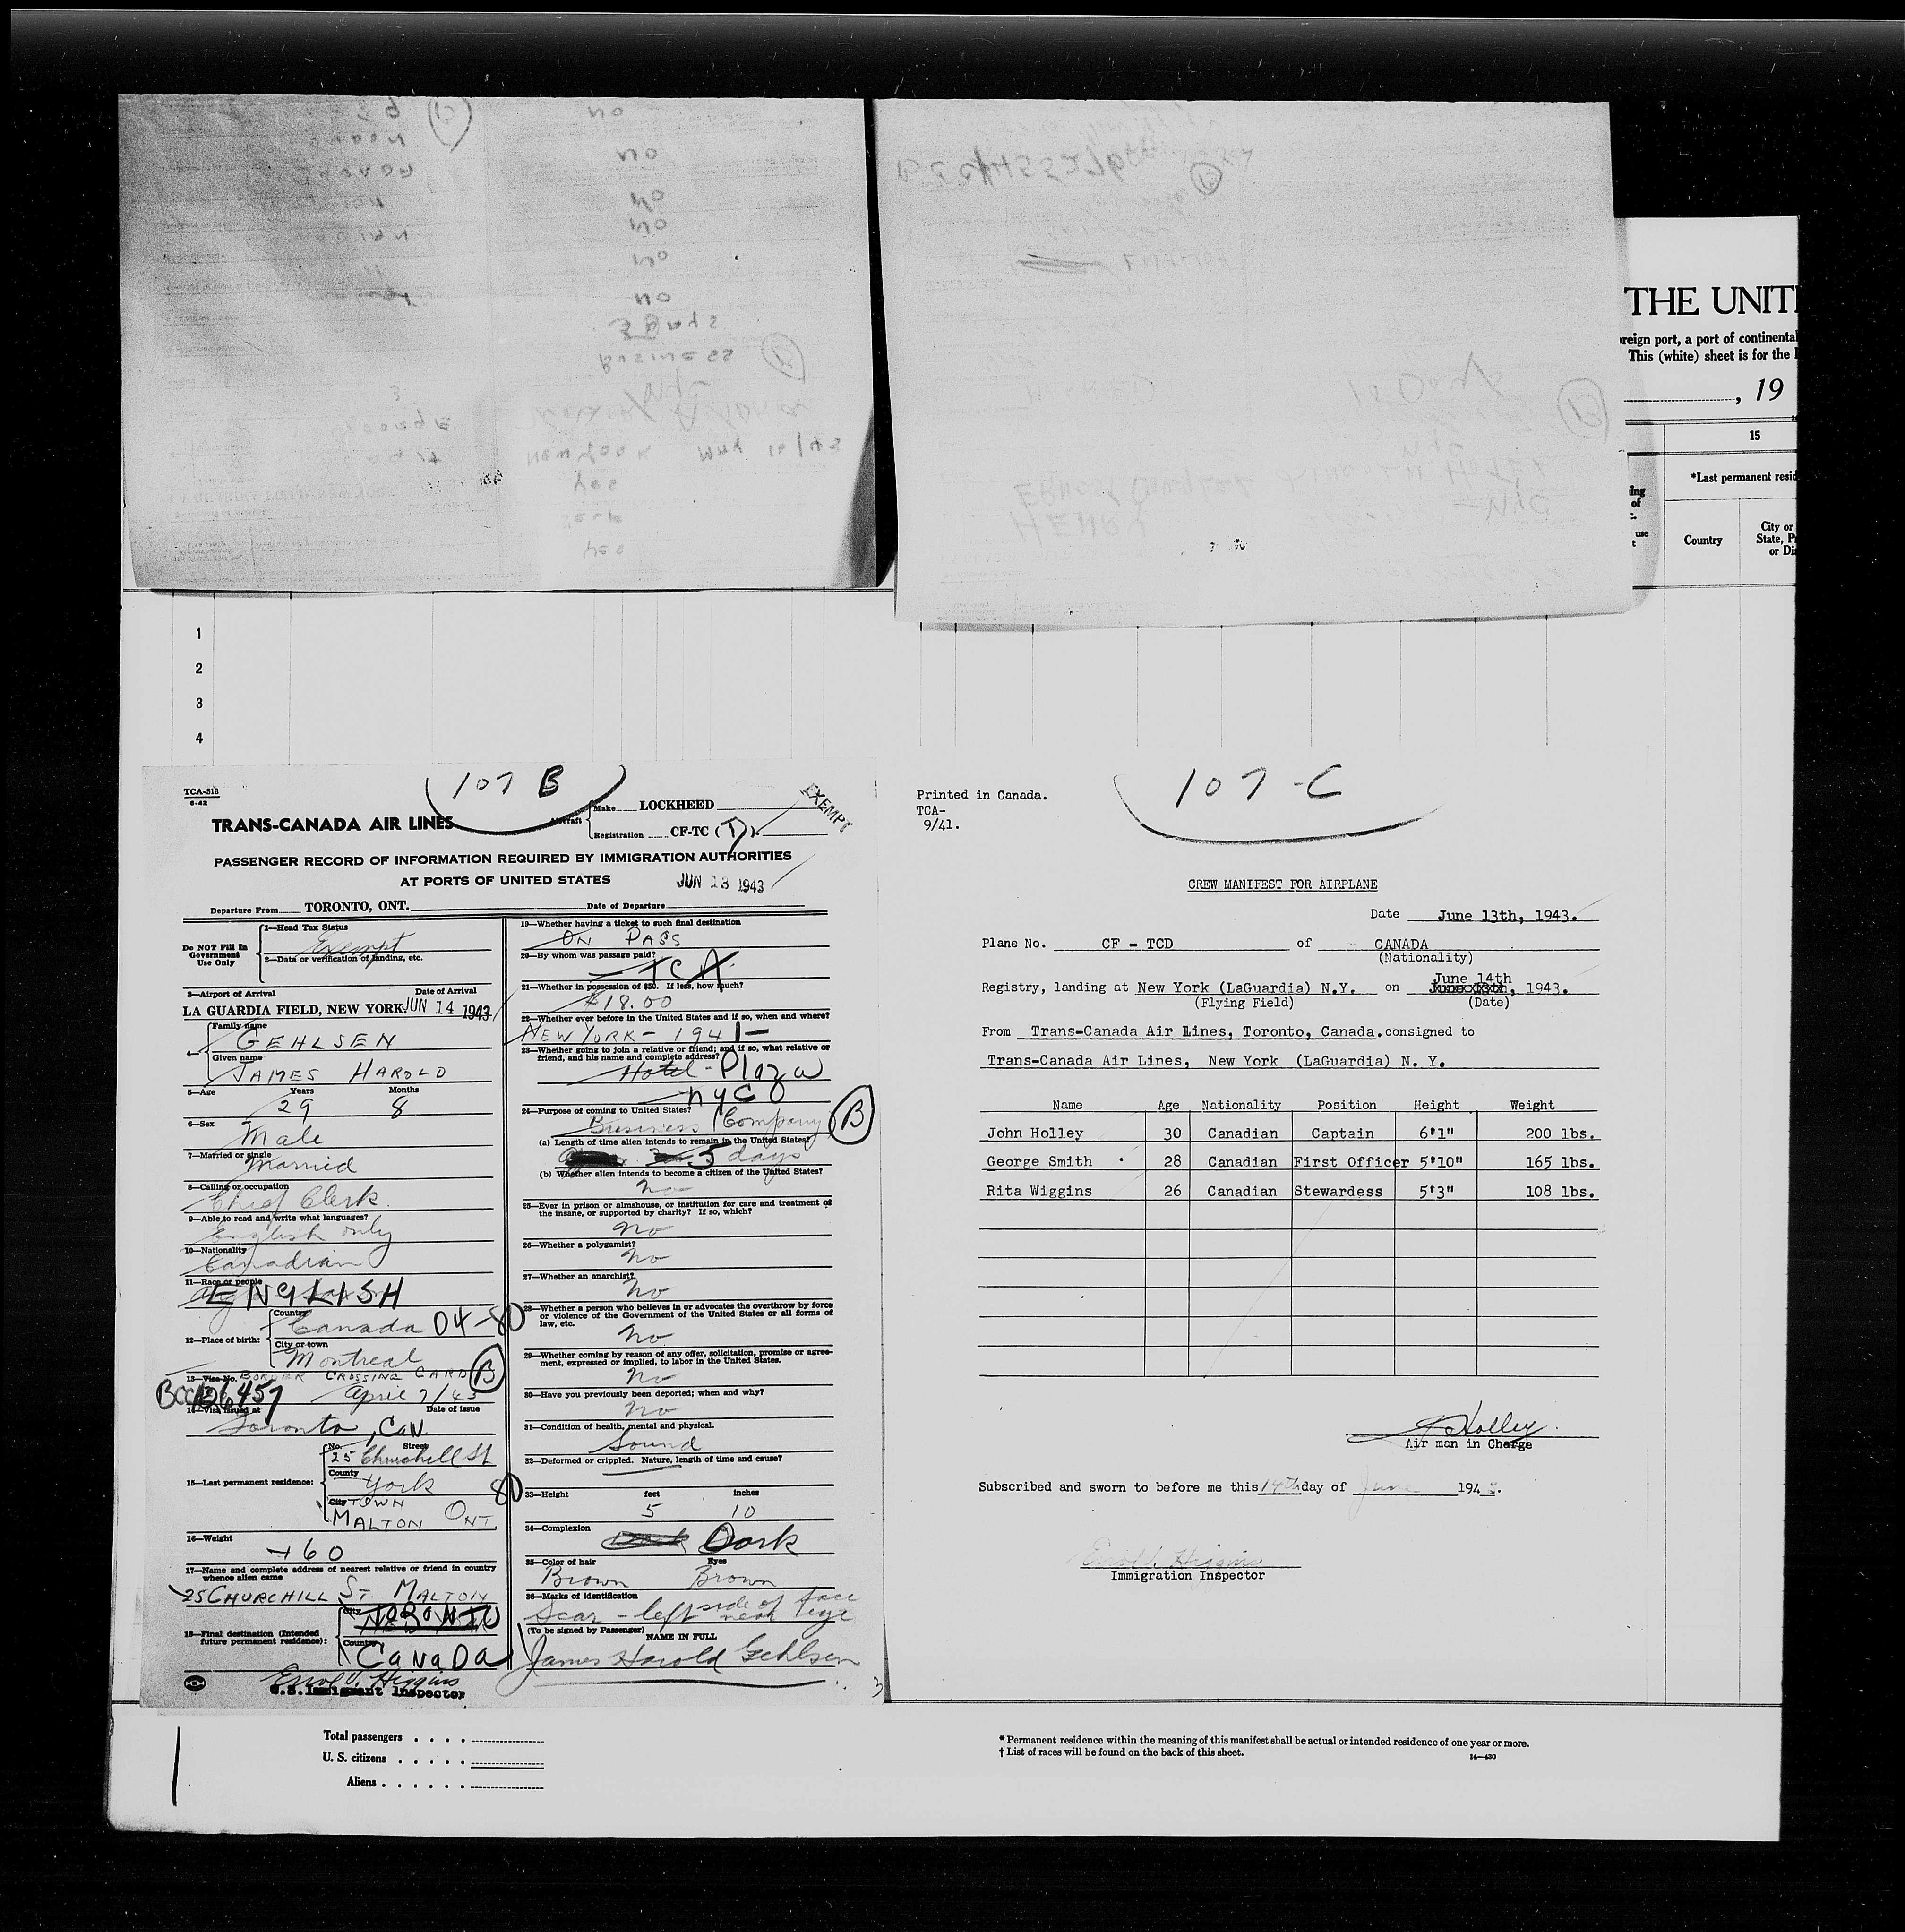 THE UNIT
reign port, a port of continental
This (white) sheet is for the
, 19
15
*Last permanent resid
ing
of
use
t
Country
City or
State, P
or Di
1
2
3
4
107 B
TCA-513
6-42
TRANS-CANADA AIR LINES
Aircraft
Make LOCKHEED
Registration CF-TC (T)
EXEMPT
PASSENGER RECORD OF INFORMATION REQUIRED BY IMMIGRATION AUTHORITIES
AT PORTS OF UNITED STATES
JUN 13 1943
Departure From TORONTO, ONT. Date of Departure
Do NOT Fill In
Government
Use Only
1—Head Tax Status
Exempt
2—Data or verification of landing, etc.
3—Airport of Arrival Date of Arrival
LA GUARDIA FIELD, NEW YORK JUN 14 1943
4— Family name
GEHLSEN
Given name
JAMES HAROLD
5—Age Years Months
29 8
6—Sex
Male
7—Married or single
Married
8—Calling or occupation
Chief Clerk
9—Able to read and write what languages?
English only
10—Nationality
Canadian
11—Race or people
ENGLISH
12—Place of birth:
Country
Canada 04-80
City or town
Montreal
13—Visa No. BORDER CROSSING CARD (B)
April 7/43
14—Visa issued at Date of issue
Toronto, Can.
15—Last permanent residence:
No. Street
25 Churchill St
County
York 80
City TOWN
MALTON ONT
16—Weight
160
17—Name and complete address of nearest relative or friend in country
whence alien came
25 CHURCHILL ST MALTON
18—Final destination (Intended
future permanent residence):
City
Country
CANADA
Errol V. Higgins
U.S. Immigrant Inspector
19—Whether having a ticket to such final destination
ON PASS
20—By whom was passage paid?
TCA
21—Whether in possession of $50. If less, how much?
$18.00
22—Whether ever before in the United States and if so, when and where?
NEW YORK - 1941-
23—Whether going to join a relative or friend; and if so, what relative or
friend, and his name and complete address?
Hotel - Plaza
NYC
24—Purpose of coming to United States?
Business (Company (B)
(a) Length of time alien intends to remain in the United States?
5 days
(b) Whether alien intends to become a citizen of the United States?
No
25—Ever in prison or almshouse, or institution for care and treatment of
the insane, or supported by charity? If so, which?
No
26—Whether a polygamist?
No
27—Whether an anarchist?
No
28—Whether a person who believes in or advocates the overthrow by force
or violence of the Government of the United States or all forms of
law, etc.
No
29—Whether coming by reason of any offer, solicitation, promise or agree-
ment, expressed or implied, to labor in the United States.
No
30—Have you previously been deported; when and why?
No
31—Condition of health, mental and physical.
Sound
32—Deformed or crippled. Nature, length of time and cause?
33—Height feet inches
5 10
34—Complexion
Dark
35—Color of hair Eyes
Brown Brown
36—Marks of identification
Scar - left side of face near eye
(To be signed by Passenger) NAME IN FULL
James Harold Gehlsen
107-C
Printed in Canada.
TCA-
9/41.
CREW MANIFEST FOR AIRPLANE
Date June 13th, 1943.
Plane No. CF - TCD of CANADA
(Nationality)
June 14th
Registry, landing at New York (LaGuardia) N.Y. on , 1943.
(Flying Field) (Date)
From Trans-Canada Air Lines, Toronto, Canada. consigned to
Trans-Canada Air Lines, New York (LaGuardia) N. Y.
Name Age Nationality Position Height Weight
John Holley 30 Canadian Captain 6'1" 200 lbs.
George Smith 28 Canadian First Officer 5'10" 165 lbs.
Rita Wiggins 26 Canadian Stewardess 5'3" 108 lbs.
J Holley
Air man in Charge
Subscribed and sworn to before me this 14th day of June 1943.
Errol V. Higgins
Immigration Inspector
Total passengers . . . .
U. S. citizens . . . . .
Aliens . . . . . .
* Permanent residence within the meaning of this manifest shall be actual or intended residence of one year or more.
† List of races will be found on the back of this sheet.
14—430